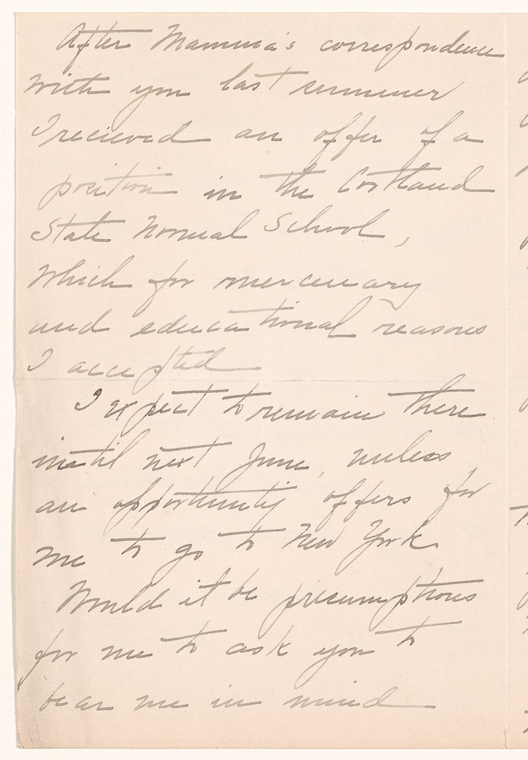 After Mamma's correspondence
with you last summer
I recieved an offer of a
position in the Cortland
State Normal School,
which for mercenary
and educational reasons
I accepted
I expect to remain there
until next June, unless
an opportunity offers for
me to go to New York
Would it be presumptious
for me to ask you to
bear me in mind